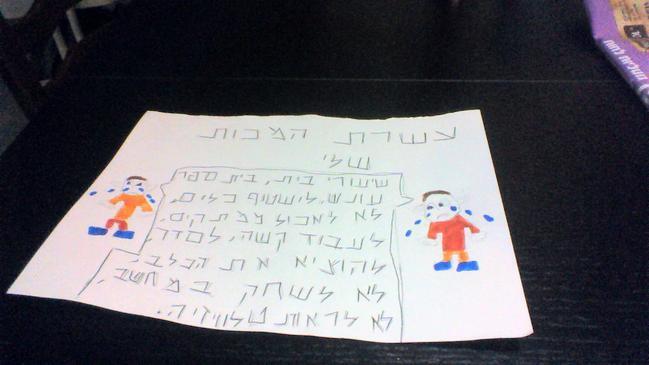 עשרת המכות
שלי
שיעורי בית, בית ספר
עונש, לישטוף כלים,
לא לאכול ממתקים,
לעבוד קשה, לסדר,
להוציא את הכלב,
לא לשחק במחשב,
לא לראות טלוויזיה.